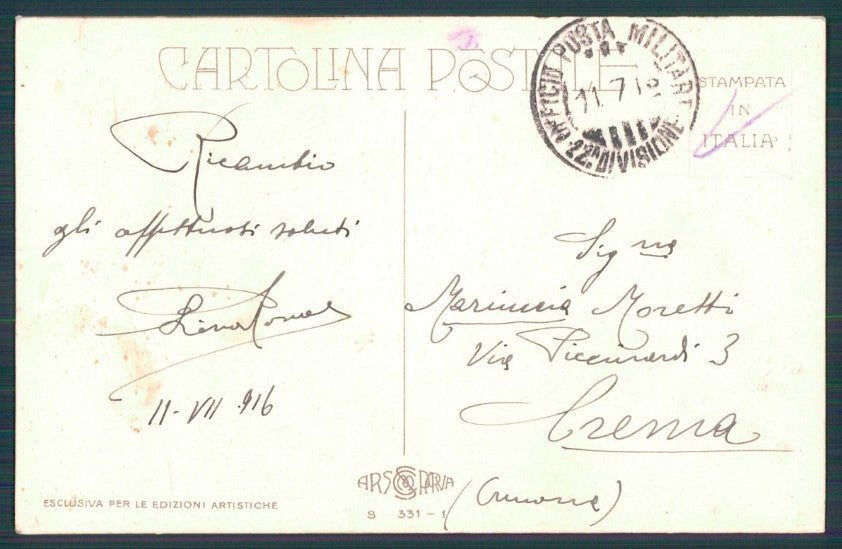 CARTOLINA POSTALE
UFFICIO POSTA MILITARE
11.7.16
22ª DIVISIONE
STAMPATA
IN
ITALIA
Ricambio
gli affettuosi saluti
11-VII 916
Sig na
Mariuccia Moretti
Via Piccinardi 3
Crema
(Cremona)
ARS PATRIA
S 331-1
ESCLUSIVA PER LE EDIZIONI ARTISTICHE